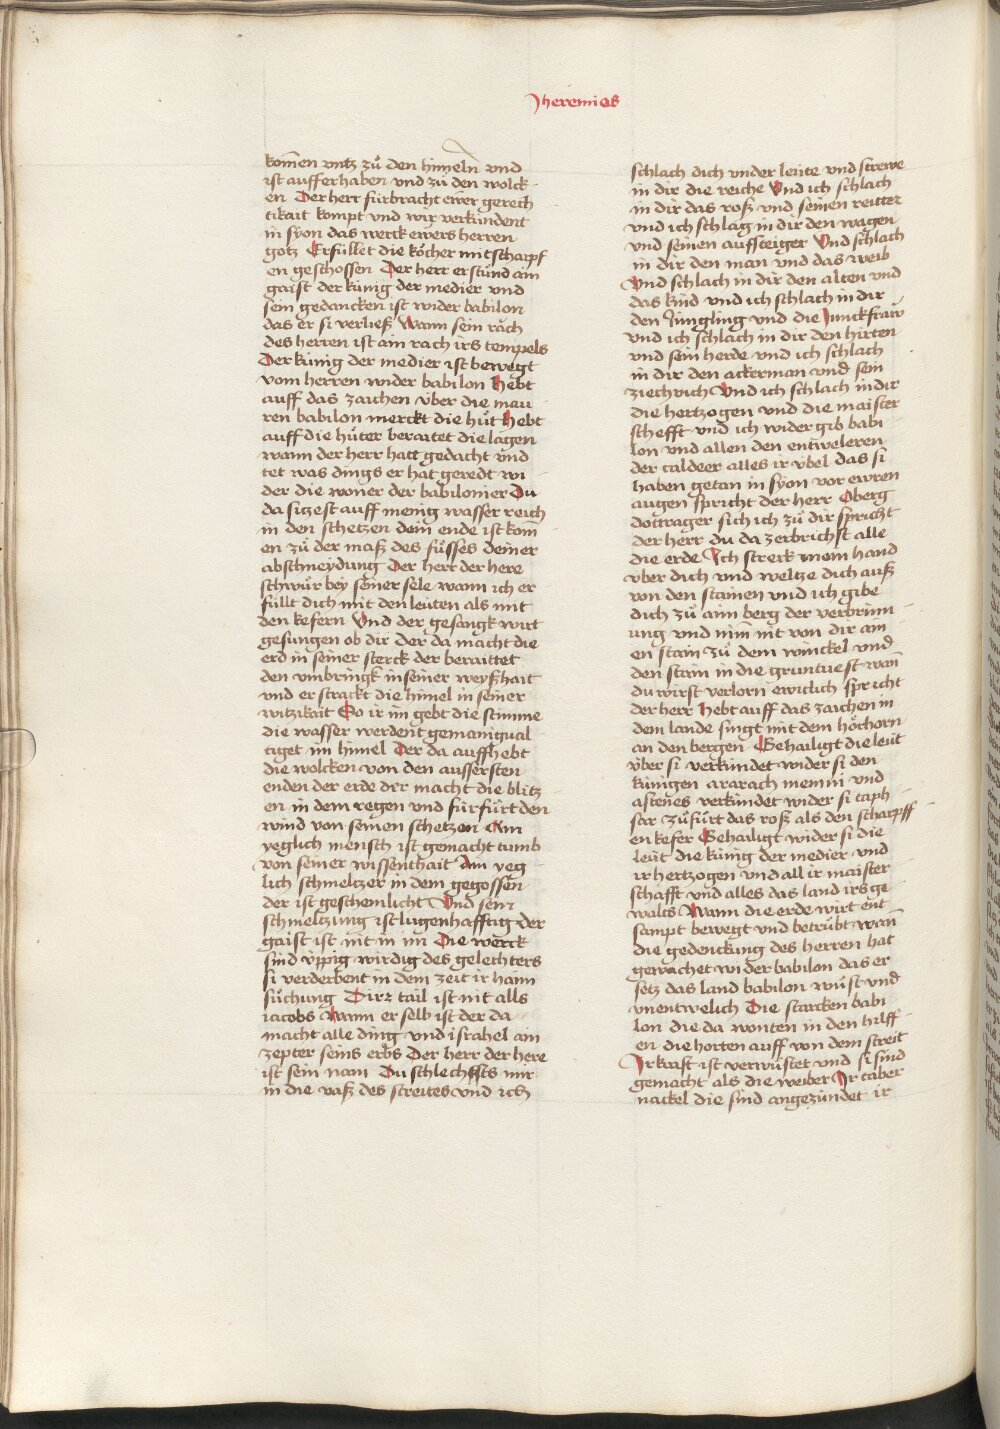 Jheremias
komen vntz zů den himeln vnd
ist aufferhaben vnd zů den wolck
en Der herr fürbracht ewer gerech
tikait kompt vnd wir verkündent
in syon das werck ewers herren
gotz Erfüllet die kôcher mit scharpf
en geschossen Der herr erstůnd am
gaist der künig der medier vnd
sein gedancken ist wider babilon
das er si verließ Wann sein râch
des herren ist am rach irs tempels
Der künig der medier ist bewegt
vom herren wider babilon Hebt
auff das zaichen über die mau
ren babilon merckt die hůt Hebt
auff die hůter beraitet die lagen
wann der herr hatt gedacht vnd
tet was dings er hat geredt wi
der die woner der babilonier Du
da sitzest auff menig wasser reich
in den schetzen dein ende ist kom̄
en zů der maß des füsses deiner
abschneydung Der herr der here
schwůr bey seiner sele wann ich er
füllt dich mit den leüten als mit
den kefern Vnd der gesangk wirt
gesungen ob dir der da macht die
erd in seiner sterck der beraittet
den vmbringk in seiner weyßhait
vnd er strackt die himel in seiner
witzikait So ir im gebt die stimme
die wasser werdent gemanigual
tiget im himel Der da auffhebt
die wolcken von den aussersten
enden der erde der macht die blitz
en in dem regen vnd fürfürt den
wind von seinen schetzen Ain
yeglich mensch ist gemacht tumb
von seiner wissenthait Ain yeg
lich schmeltzer in dem gegossen
der ist geschemlicht Vnd sein
schmeltzung ist lugenhafftig der
gaist ist nit in im Die werck
sind üppig wirdig des gelechters
si verderbent in dem zeit ir haim
sůchung Dirz tail ist nit alls
iacobs Wann er selb ist der da
macht alle ding vnd israhel ain
zepter seins erbs Der herr der here
ist sein nam Du schlechsts mir
in die vaß des streites vnd ich
schlach dich vnder leüte vnd strewe
in dir die reiche Vnd ich schlach
in dir das roß vnd seinen reitter
vnd ich schlag in dir den wagen
vnd seinen auffsteiger Vnd schlach
in dir den man vnd das weib
Vnd schlach in dir den alten vnd
das kind vnd ich schlach in dir
den Jüngling vnd die Junckfraw
vnd ich schlach in dir den hirten
vnd sein herde vnd ich schlach
in dir den ackerman vnd sein
ziechuich Vnd ich schlach in dir
die hertzogen vnd die maister
schefft vnd ich wider gib babi
lon vnd allen den entweleren
der caldeer alles ir übel das si
haben getan in syon vor ewren
augen spricht der herr Oberg
dottrager sich ich zů dir spricht
der herr du da zerbrichst alle
die erde Ich streck mein hand
über dich vnd weltze dich auß
von den stainen vnd ich gibe
dich zů aim berg der verbrinn
ung vnd nim̄ nit von dir ain
en stain zů dem winckel vnd
den stain in die gruntuest wan̄
du wirst verlorn ewiclich spricht
der herr Hebt auff das zaichen in
dem lande singt mit dem hôrhorn
an den bergen Gehailigt die leüt
über si verkündet wider si den
künigen ararach menni vnd
astenes verkündet wider si taph
sar zůfürt das roß als den scharpff
en kefer Gehailigt wider si die
leüt die künig der medier vnd
ir hertzogen vnd all ir maister
schafft vnd alles das land irs ge
walts Wann die erde wirt ent
sampt bewegt vnd betrübt wan̄
die gedenckung des herren hat
gewachet wider babilon das er
setz das land babilon wůst vnd
vnentwelich Die starcken babi
lon die da wonten in den hilff
en die horten auff von dem streit
Ir kraft ist verwüstet vnd si sind
gemacht als die weiber Ir taber
nackel die sind angezündet ir